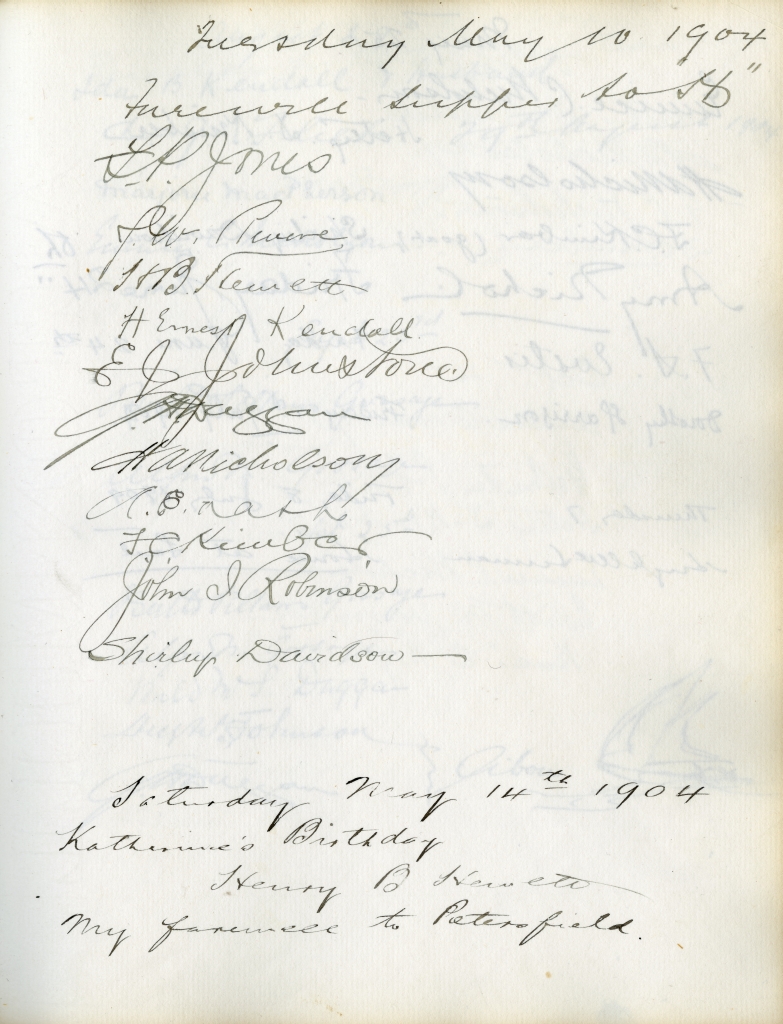 Tuesday May 10 1904
Farewell supper to "H"
F.P. Jones
J.W.
H B Hewett
H Ernest Kendall.
E J Johnstone
Duggan
H A Nicholson
A.E. Nash
F C Kimber
John I Robinson
Shirley Davidson —
Saturday May 14th 1904
Katherine's Birthday
Henry B Hewett
My farewell to Petersfield.